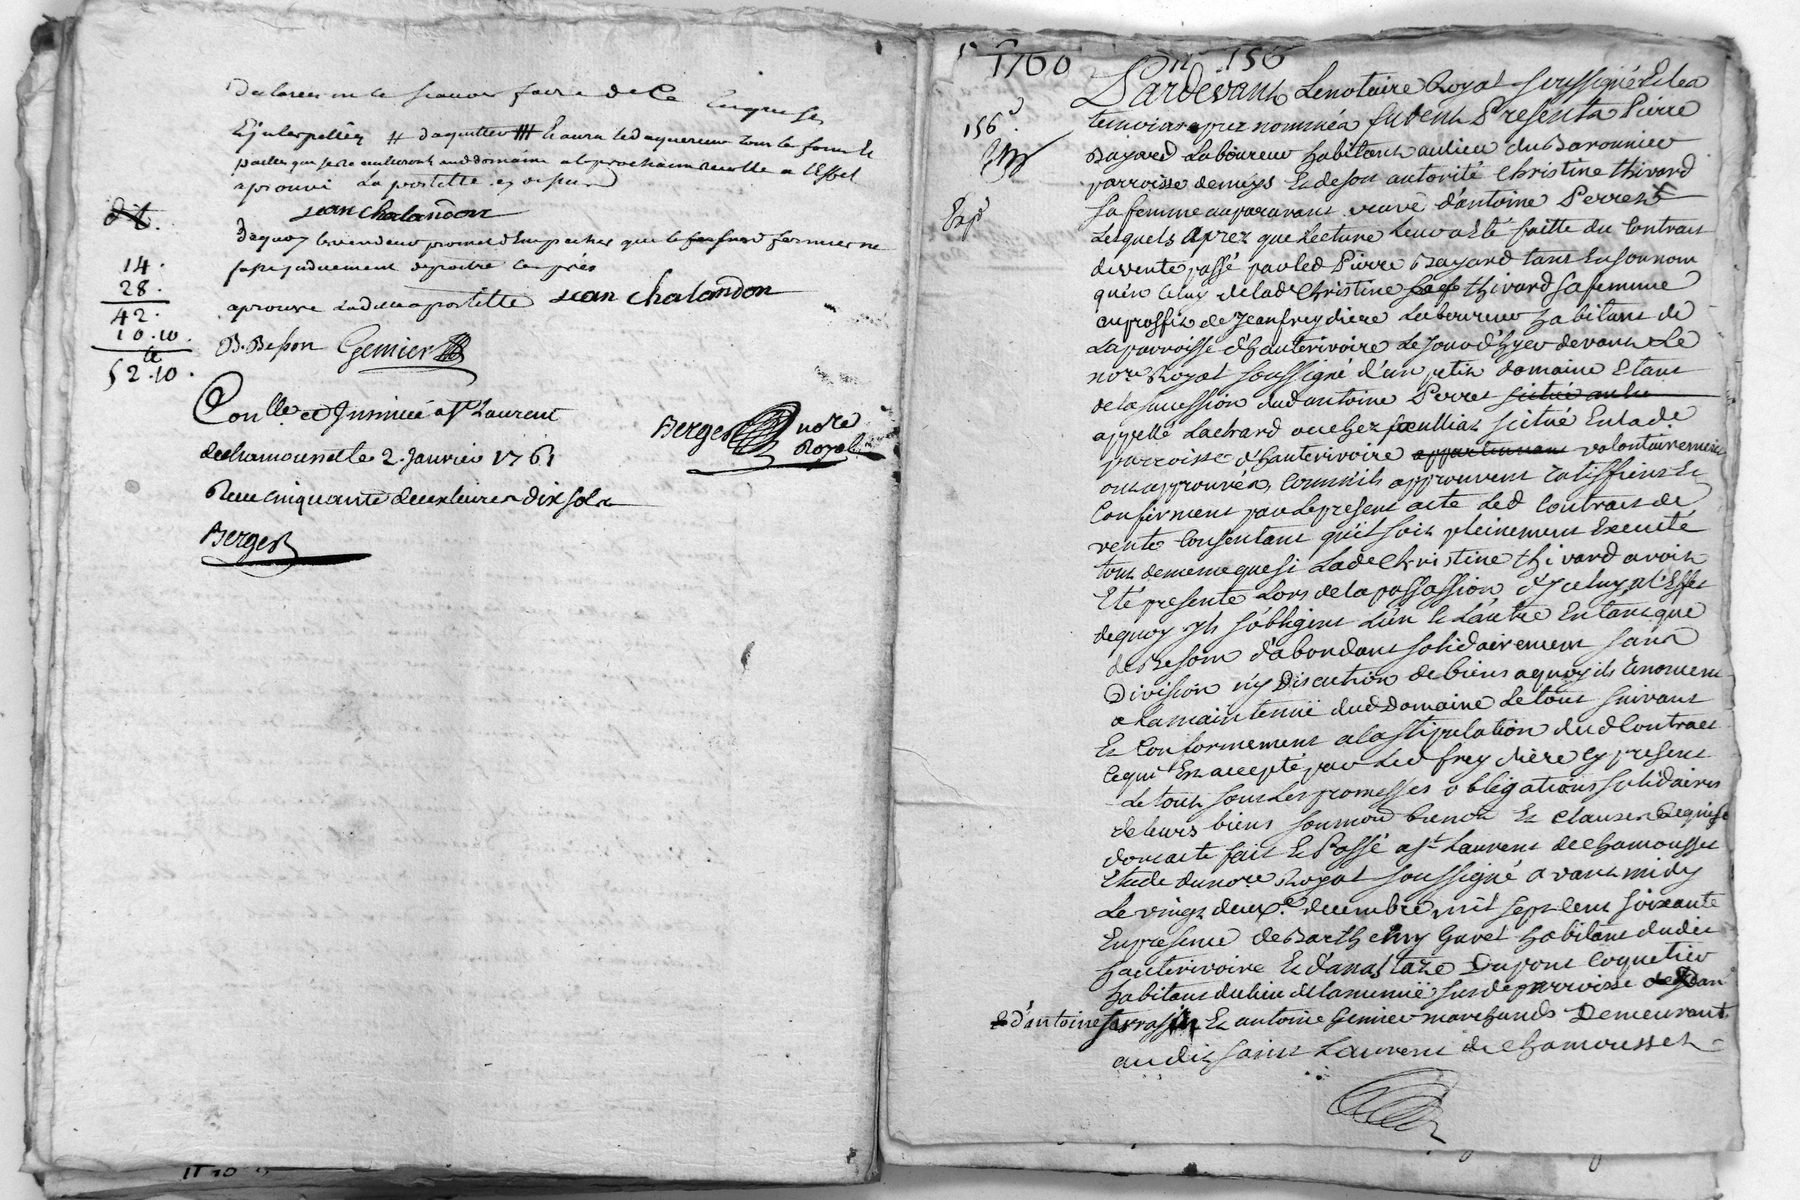 declarer ne le scavoir faire de ce enquis
Et interpellés # d'aquitter ### Et aura led aquereur tous les foins Et
pailles qui and domaine a la prochaine recolte a l'effet
aprouvé La postille cy dessus
Jean Chalandon
14.
28.
42.
10.10.
52.10.
De quoy le vendeur promet d'Empecher que le fermier ne
aprouve lad apostille Jean Chalandon
B. Besson Gemier
Con.lle et Insinué a St Laurent
de chamousset le 2. Janvier 1761
Recu cinquante deux livres dix sols
Berger
Berger no.re
Royal
1760 n 156
156
Exp.é
Pardevant Le notaire Royal soussigné Et les
temoins apres nommés furent Presents Pierre
Bayard Laboureur habitant au lieu du Baronnier
parroisse de meys Et de son autorité Christine thivard
sa femme auparavant veuve d'antoine Perret
Lesquels aprez que Lecture Leur a Eté faitte du Contrat
de vente passé par led Pierre Bayard tant En son nom
qu'en Celuy de lad.e Christine thivard sa femme
au proffit de Jean freydiere Laboureur habitant de
La parroisse d'hauterivoire Le Jour d'hyer devant Le
no.re Royal soussigné d'un petit domaine Etant
de la succession dud antoine Perret scitué au lie
appellé Lachard ou chez scitué En lad.e
parroisse d'hauterivoire appartenant volontairement
ont approuvés, comme ils approuvent ratiffient Et
Confirment par Le present acte Led Contrat de
vente Consentant qu'il soit pleinement Executé
tout de meme que si Lad.e Christine thivard avoit
Eté presente Lors de la passassion d'Yceluy, a l'Effet
de quoy Ils s'obligent L'un Et L'autre En tant que
de Besoin d'abondant solidairement sans
Division n'y Discution de biens a quoy ils renoncent
a La maintenüe dud Domaine Le tout suivant
Et Conformement a la stipulation dud Contract
Ce qui Est accepté par Led freydiere Cy present
Le tout sous Les promesses obligations solidaires
de leurs biens soumon renon Et clauses Requises
dont acte fait Et Passé a St Laurent de chamousset
Etude du no.re Royal soussigné avant midy
Le vingt deux.e decembre mil sept Cent soixante
En presence de Barthelemy Gavet habitant dudit
hauterivoire Et d'anastaze Dupont Coquetier
habitant du lieu de la susd.e parroisse
Et d'antoine terrassin Et antoine Gemier marchands Demeurants
audit saint Laurent de chamousset